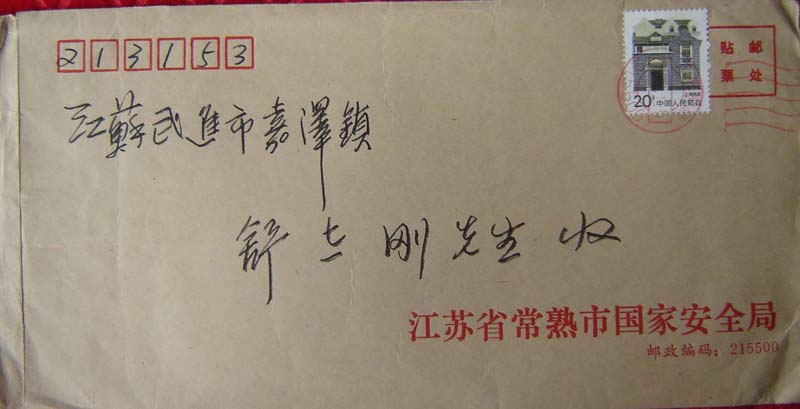 213153
贴邮
票处
20分
中国人民邮政
江蘇武進市嘉澤鎮
舒士刚先生 收
江苏省常熟市国家安全局
邮政编码：215500